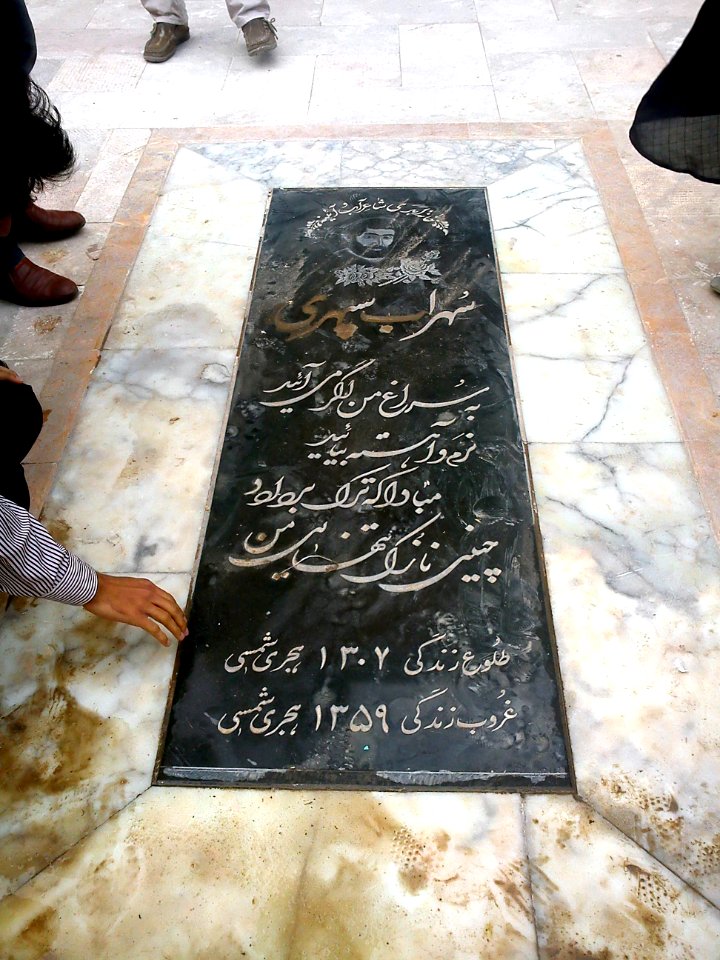 شاعر آب
سُهراب سپهری
به سُراغ من اگر می آئید
نرم و آهسته بیائید
مبادا که ترک بردارد
چینی نازک تنهایی من
طلُوع زندگی ۱۳۰۷ هجری شمسی
غرُوب زندگی ۱۳۵۹ هجری شمسی